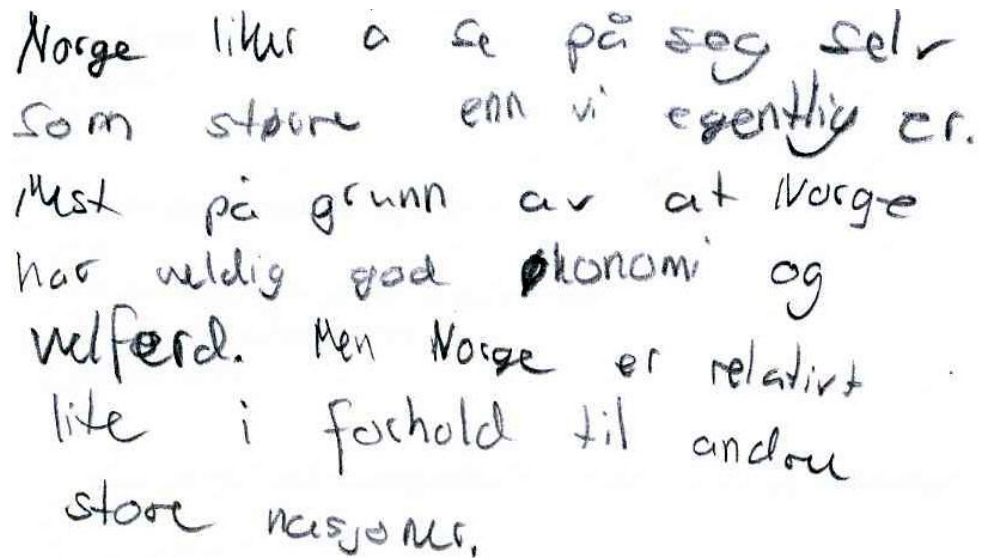 Norge liker å se på seg selv
som større enn vi egentlig er.
Mest på grunn av at Norge
har veldig god økonomi og
velferd. Men Norge er relativt
lite i forhold til andre
store nasjoner.